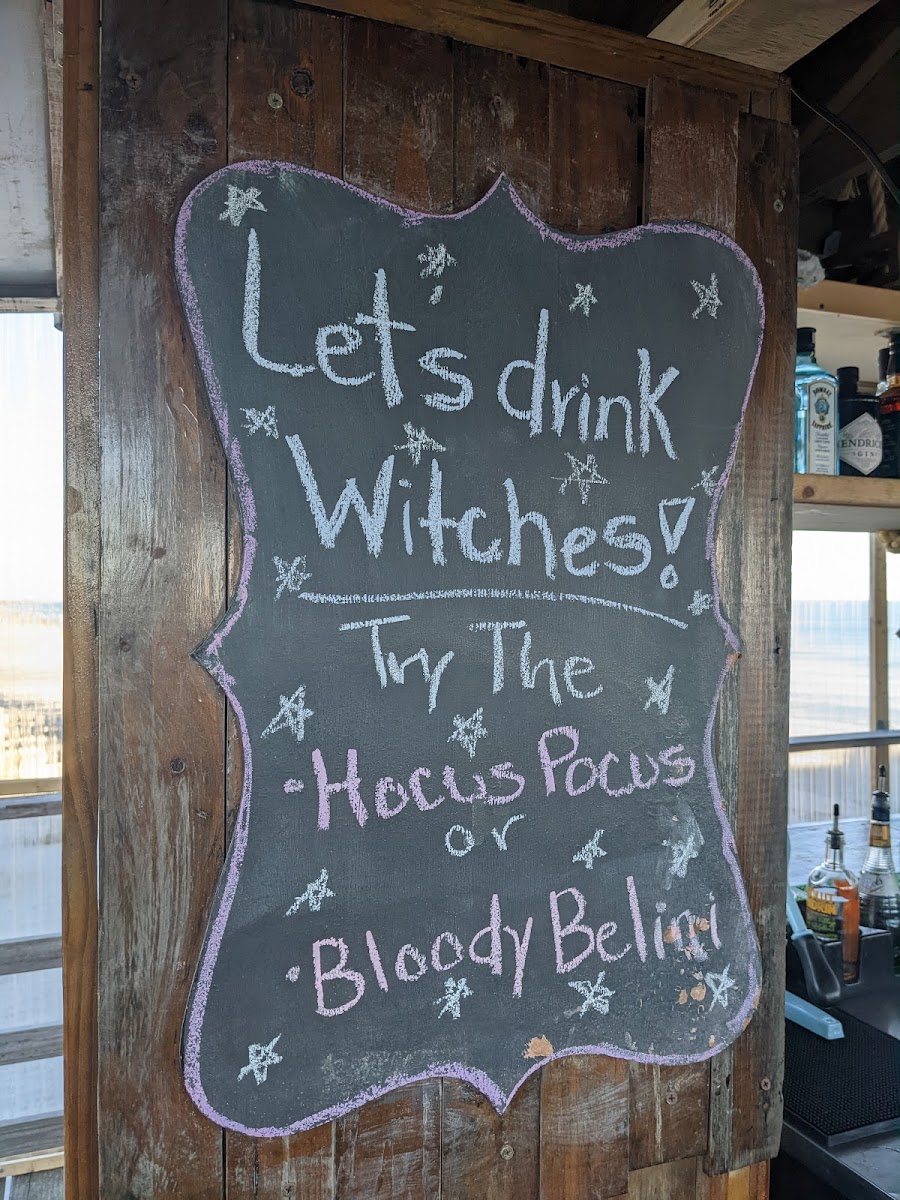 Let's drink
Witches!
Try The
• Hocus Pocus
or
• Bloody Belini
BOMBAY
SAPPHIRE
ENDRICK
GIN